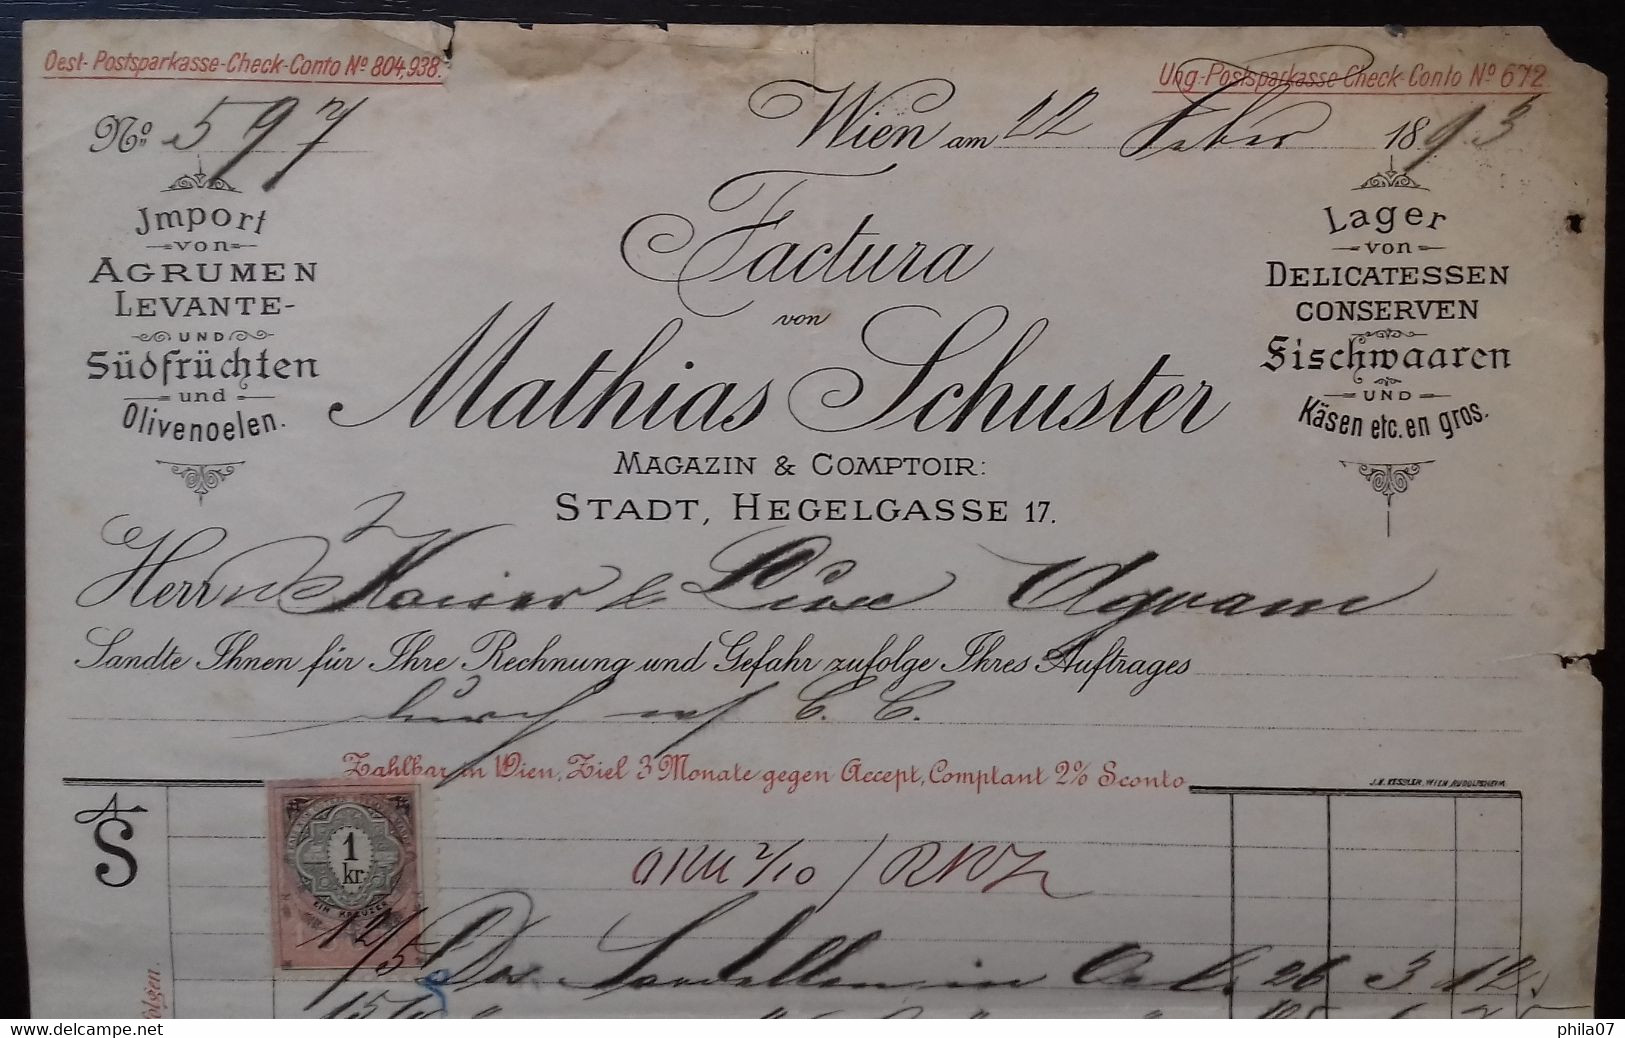 Oest-Postsparkasse-Check-Conto Nº 804,938.
Ung-Postsparkasse-Check-Conto Nº 672
Nº 597
Wien am 22 Feber 1893
Jmport
von
AGRUMEN
LEVANTE-
UND
Südfrüchten
und
Olivenoelen.
Factura
von
Mathias Schuster
MAGAZIN & COMPTOIR:
STADT, HEGELGASSE 17.
Lager
von
DELICATESSEN
CONSERVEN
Fischwaaren
UND
Käsen etc. en gros.
Herrn Kaiser & Agram
Sandte Ihnen für Ihre Rechnung und Gefahr zufolge Ihres Auftrages
durch
Zahlbar in Wien, Ziel 3 Monate gegen Accept, Comptant 2% Sconto
J.V. KESSLER, WIEN, RUDOLFSHEIM
S
1
kr.
EIN KREUZER
12/5 Sardellen in 26 3 12
folgen.
phila07